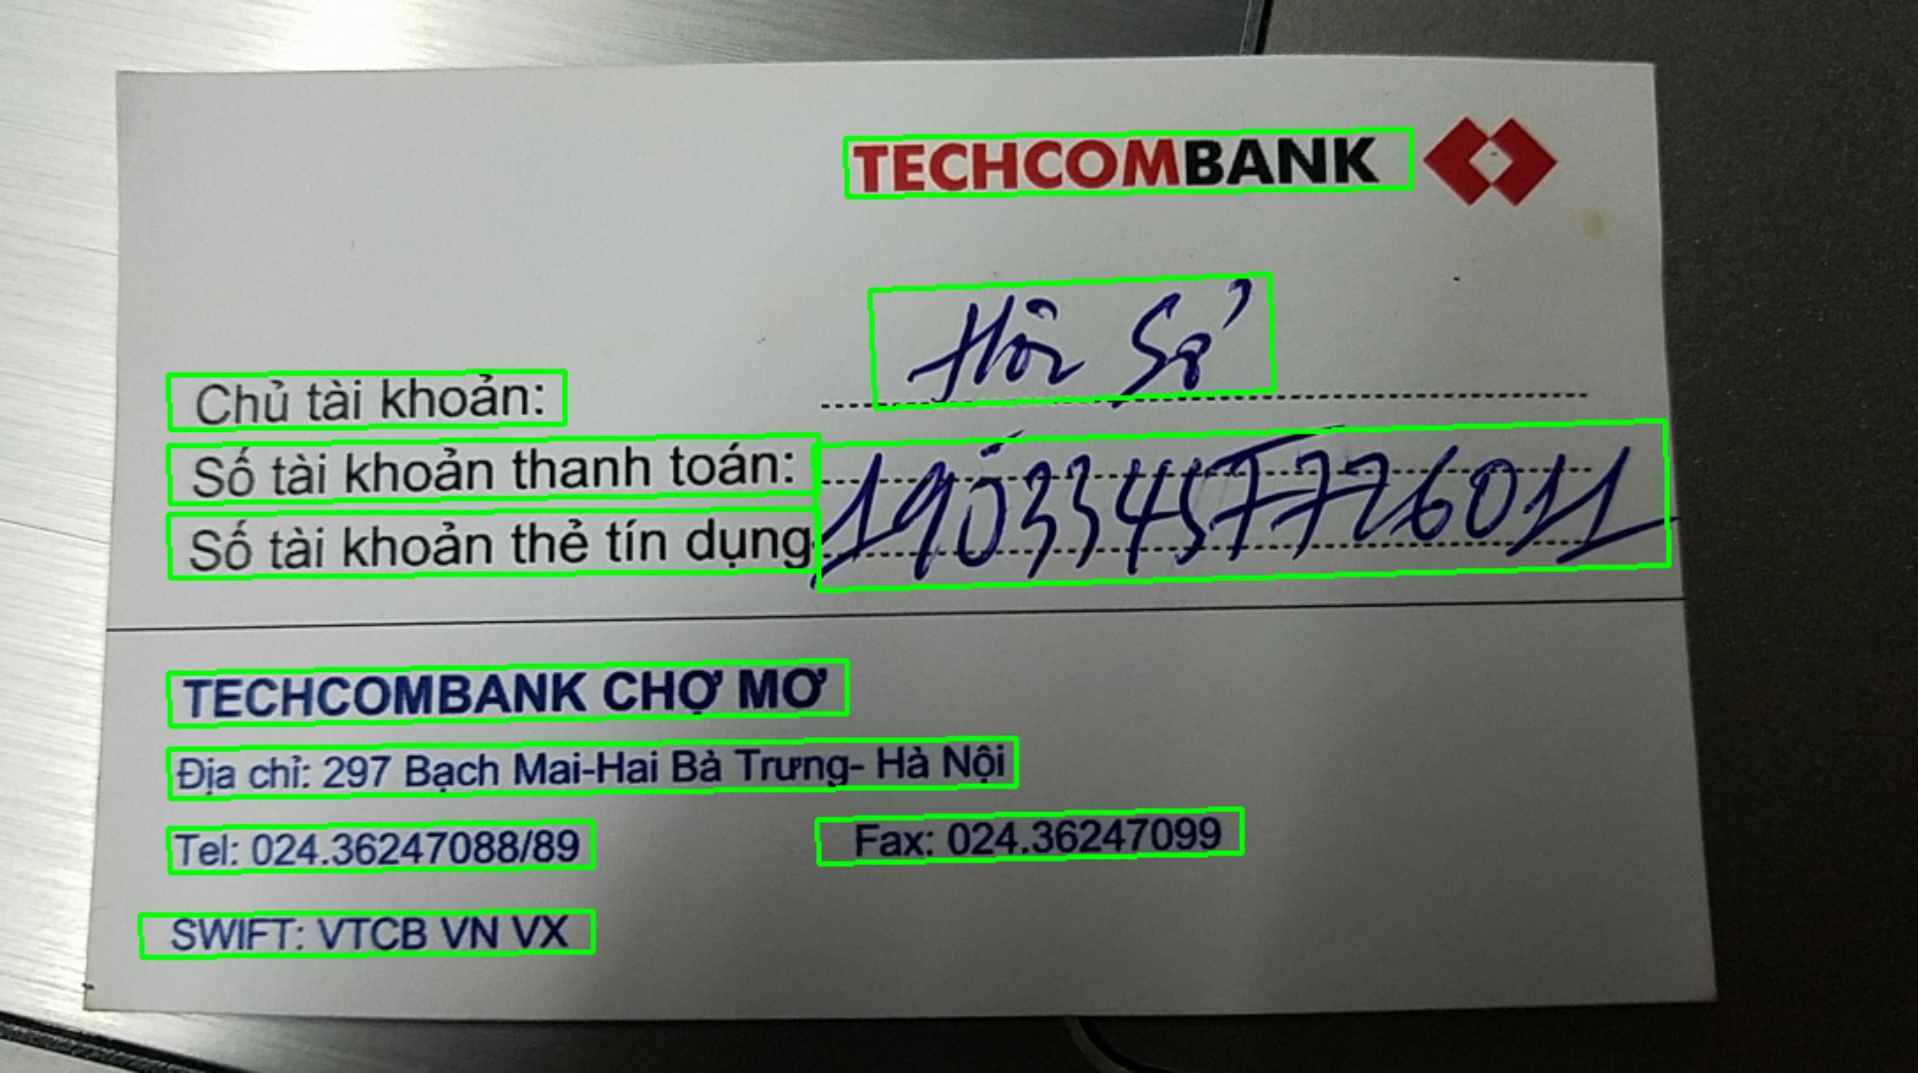 TECHCOMBANK
Chủ tài khoản:
Số tài khoản thanh toán:
Số tài khoản thẻ tín dụng
19033457726011
TECHCOMBANK CHỢ MƠ
Địa chỉ: 297 Bạch Mai-Hai Bà Trưng- Hà Nội
Tel: 024.36247088/89 Fax: 024.36247099
SWIFT: VTCB VN VX